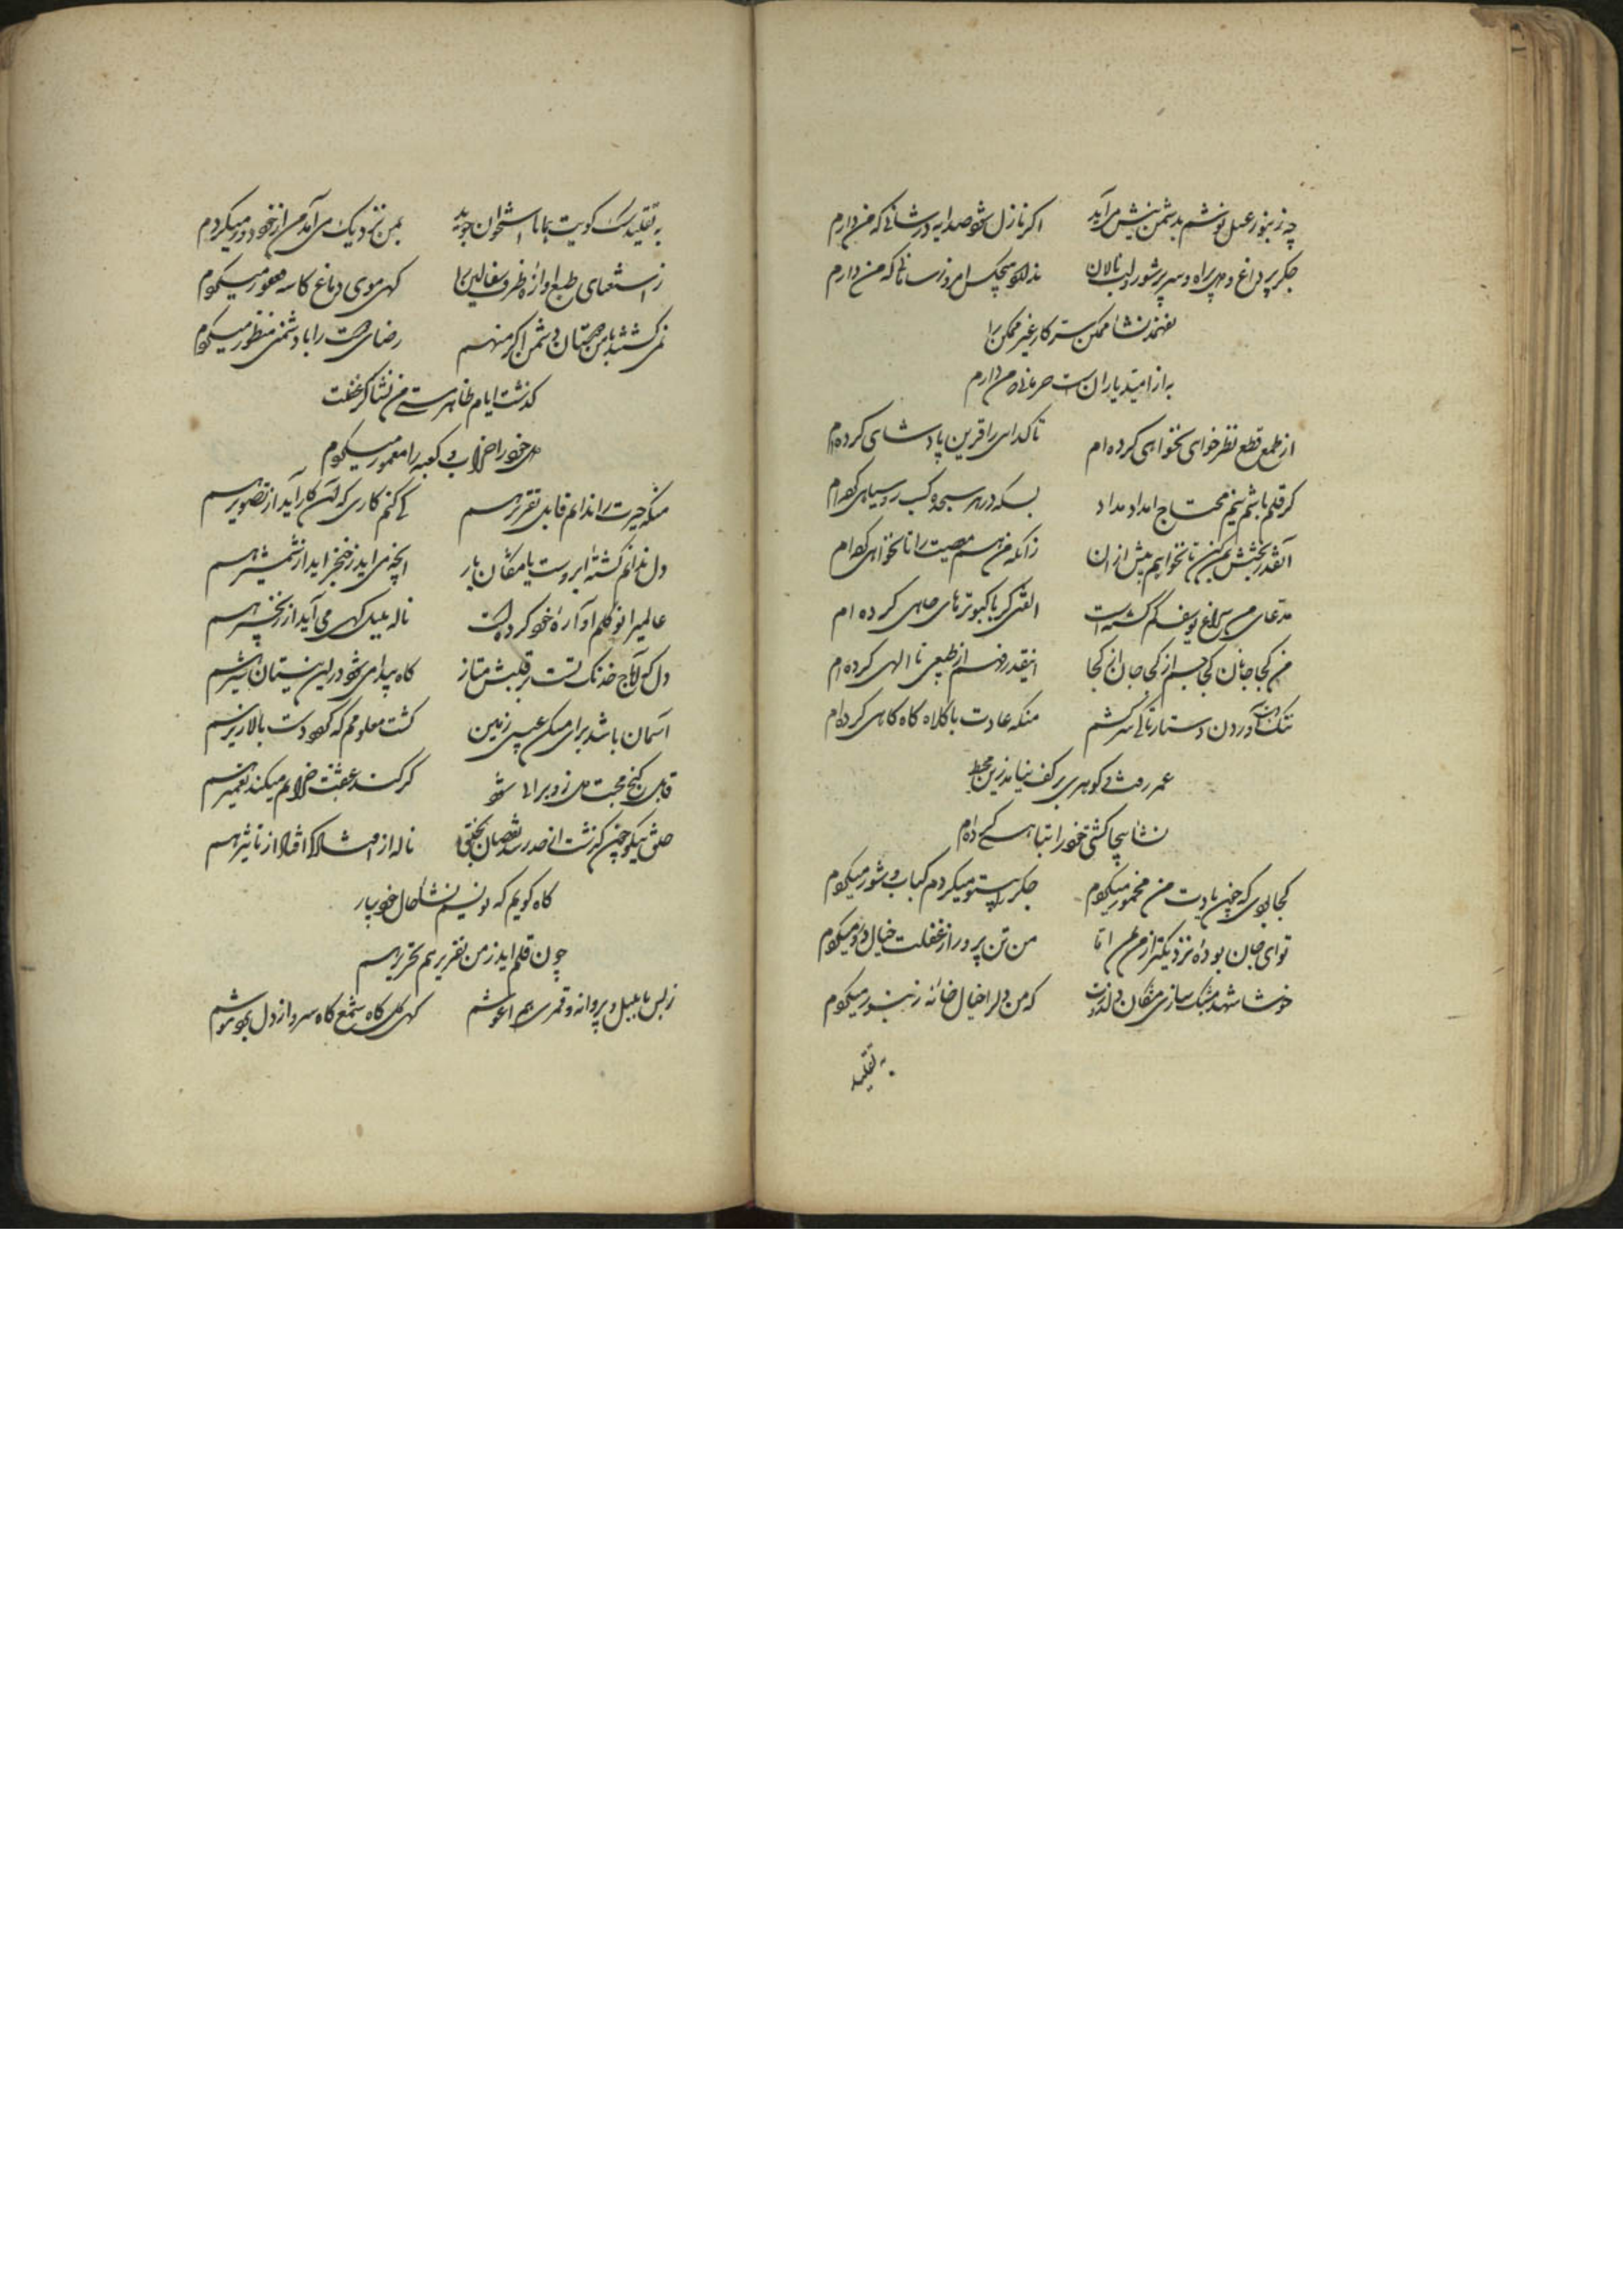 چه زنبور عسل نوشم بدشمن نیش می آید اکر نازل شود صد ایه در شانی که من دارم
جکر پر داغ و دل پر اه و سر پر شور و لب نالان ندارد هیچکس امروز سامانی که من دارم
نشاء ممکن کار غیر ممکن را
به از امید یاران است حرمانی که من دارم
از طمع قطع نظر خوای نخواهی کرده ام تا کدای را قرین پادشاهی کرده ام
کر قلم باشم نیم محتاج امداد مداد بسکه در هر سجده کسب روسیاهی کرده ام
آنقدر بخشش بکن تا نخواهیم بیش ازان زانکه من هم معصیت را تا نخواهی کرده ام
مدعای من سراغ یوسف کم کشته است الفتی کر با کبوترهای چاهی کرده ام
من کجا جانان کجا جسم از کجا جان از کجا اینقدر فهم از طبیعی تا الهی کرده ام
ننک آوردن دستار تا کی سر کشم منکه عادت با کلاه کاه کاهی کرده ام
عمر رفت و کوهری بر کف نیامد زین محیط
نشاء بیجا کشتی خود را تباهی کرده ام
کجا بودی که چون یادت من مخمور میکردم جکر را پیش تو میکردم کباب و شور میکردم
تو ای جان بوده نزدیکتر از من بمن اما من تن پرور از غفلت خیال دور میکردم
خوشا شهد مشبک سازی مژکان دلدارت که من دل را خیال خانه زنبور میکردم
به تقلید
به تقلید سک کویت هما تا استخوان جوید بمن نزدیک می آمد من از خود دور میکردم
ز استغنای طبع آوازه ظرف سفالین را کهی موی دماغ کاسه فغفور میکردم
نمی کشتند با من دوستان دشمن اکر منهم رضای دوست را با دشمنی منظور میکردم
کذشت ایام ظاهر من نشاء کر غفلت
دل خود را خراب و کعبه را معمور میکردم
منکه حیرت را ندانم قابل تقریر هم کی کنم کاری که آن کار آید از تصویر هم
دل ندانم کشته ابروست یا مژکان یار انچه می اید ز خنجر اید از شمشیر هم
عالمیرا نو کلم آواره خود کرده است ناله بلبل کهی می آید از زنجیر هم
دل که آماج خدنک تست بر قلبش متاز کاه پیدا می شود در این نیستان شیر هم
آسمان باشد برای مسکن عیسی زمین کشت معلومم که بود دست بالا زیر هم
قابل کنج محبت دل ز ویرانی شود کر کند عشقت خرابم میکند تعمیر هم
ناله از افتاد از تاثیر هم
کاه کویم که نویسم نشاء حال خود بیار
چون قلم اید ز من تقریر هم تحریر هم
ز بس با بلبل و پروانه و قمری هم اغوشم کهی کل کاه شمع کاه سرو از دل بجوشم